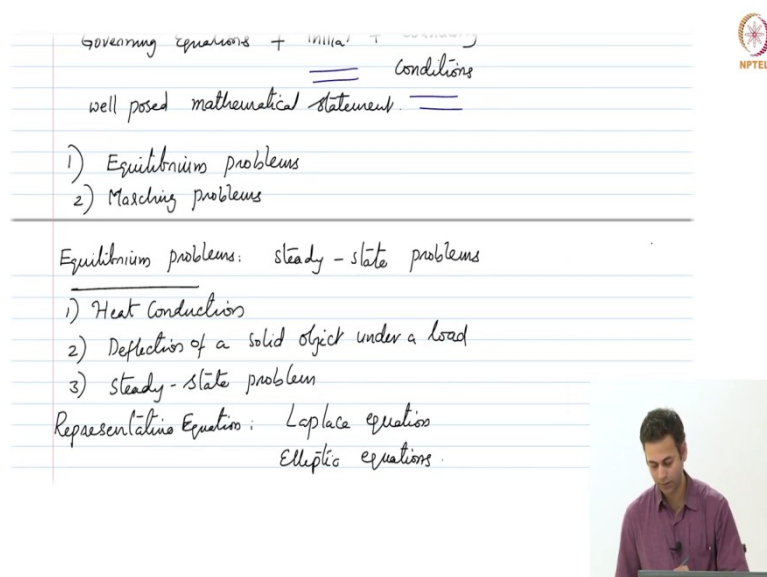 Governing Equations + Initial +
NPTEL
Conditions
well posed mathematical statement.
1) Equilibrium problems
2) Marching problems
Equilibrium problems: steady-state problems
1) Heat Conduction
2) Deflection of a solid object under a load
3) steady-state problem
Representative Equation: Laplace equation
Elliptic equations.